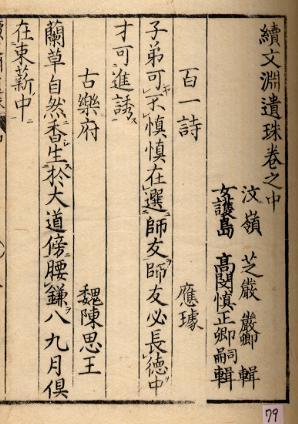 續文淵遺珠卷之中
汶嶺 芝嚴嚴卿 輯
女護島 高閔慎正卿 輯
百一詩 應璩
子弟可不慎慎在選師友師友必長德中
才可進誘
古樂府 魏陳思王
蘭草自然香生於大道傍腰鎌八九月俱
在東薪中
79